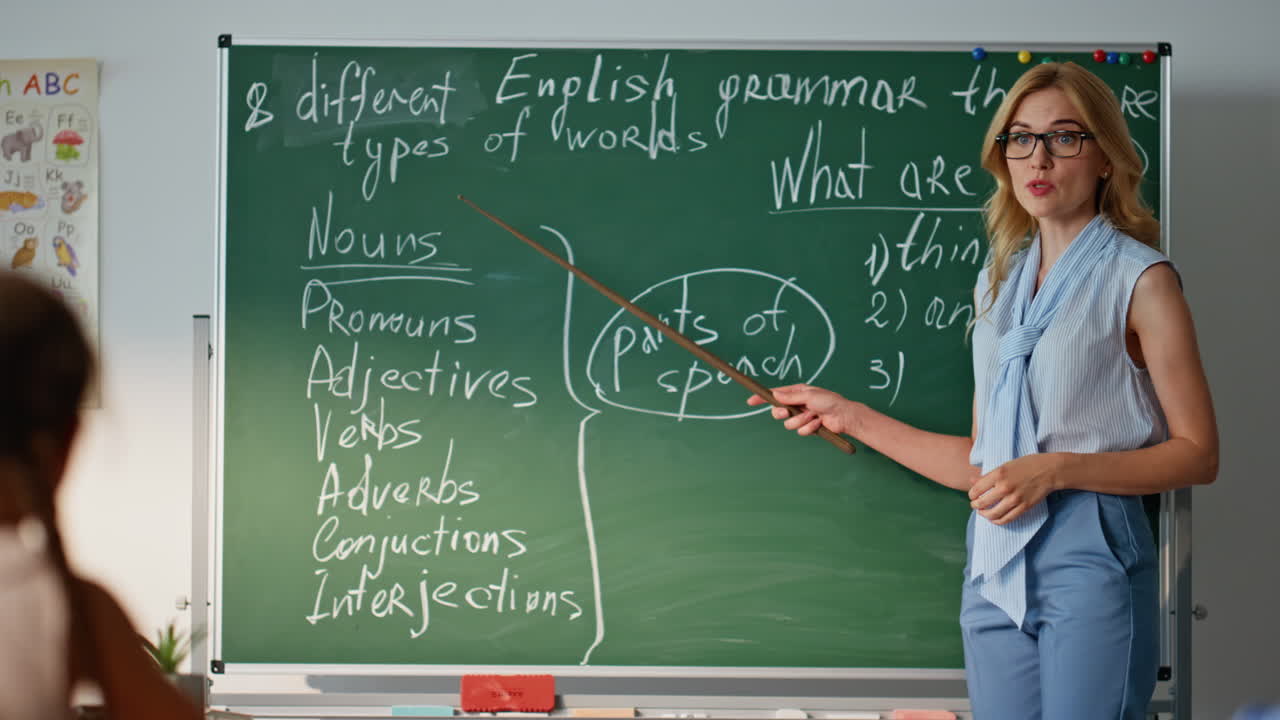 ABC
Ee Ff
Jj Kk
Oo Pp
8 different English grammar th re
types of worlds
What are
Nouns
1) thin
Pronouns
2) an
parts of
Adjectives
speach
3)
Verbs
Adverbs
Conjuctions
Interjections